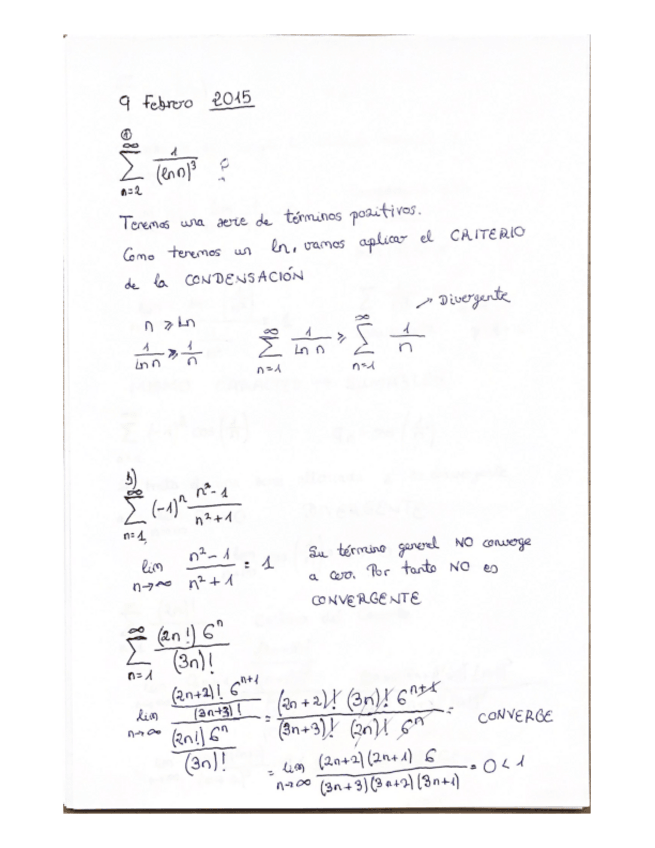 9 Febrero 2015
a)
∞
∑ 1/(ln n)³ ?
n=2
Tenemos una serie de términos positivos.
Como tenemos un ln, vamos aplicar el CRITERIO
de la CONDENSACIÓN
→ Divergente
n ≥ Ln
1/Ln n ≥ 1/n ∑_{n=1}^{∞} 1/ln n ≥ ∑_{n=1}^{∞} 1/n
b)
∞
∑ (-1)ⁿ (n²-1)/(n²+1)
n=1
lim_{n→∞} (n²-1)/(n²+1) = 1 Su término general NO converge
a cero. Por tanto NO es
CONVERGENTE
∑_{n=1}^{∞} (2n!) 6ⁿ/(3n)!
lim_{n→∞} ((2n+2)! 6ⁿ⁺¹/(3n+3)!)/((2n!) 6ⁿ/(3n)!) = (2n+2)! (3n)! 6ⁿ⁺¹/((3n+3)! (2n)! 6ⁿ) = CONVERGE
= lim_{n→∞} (2n+2)(2n+1) 6/((3n+3)(3n+2)(3n+1)) = 0 < 1